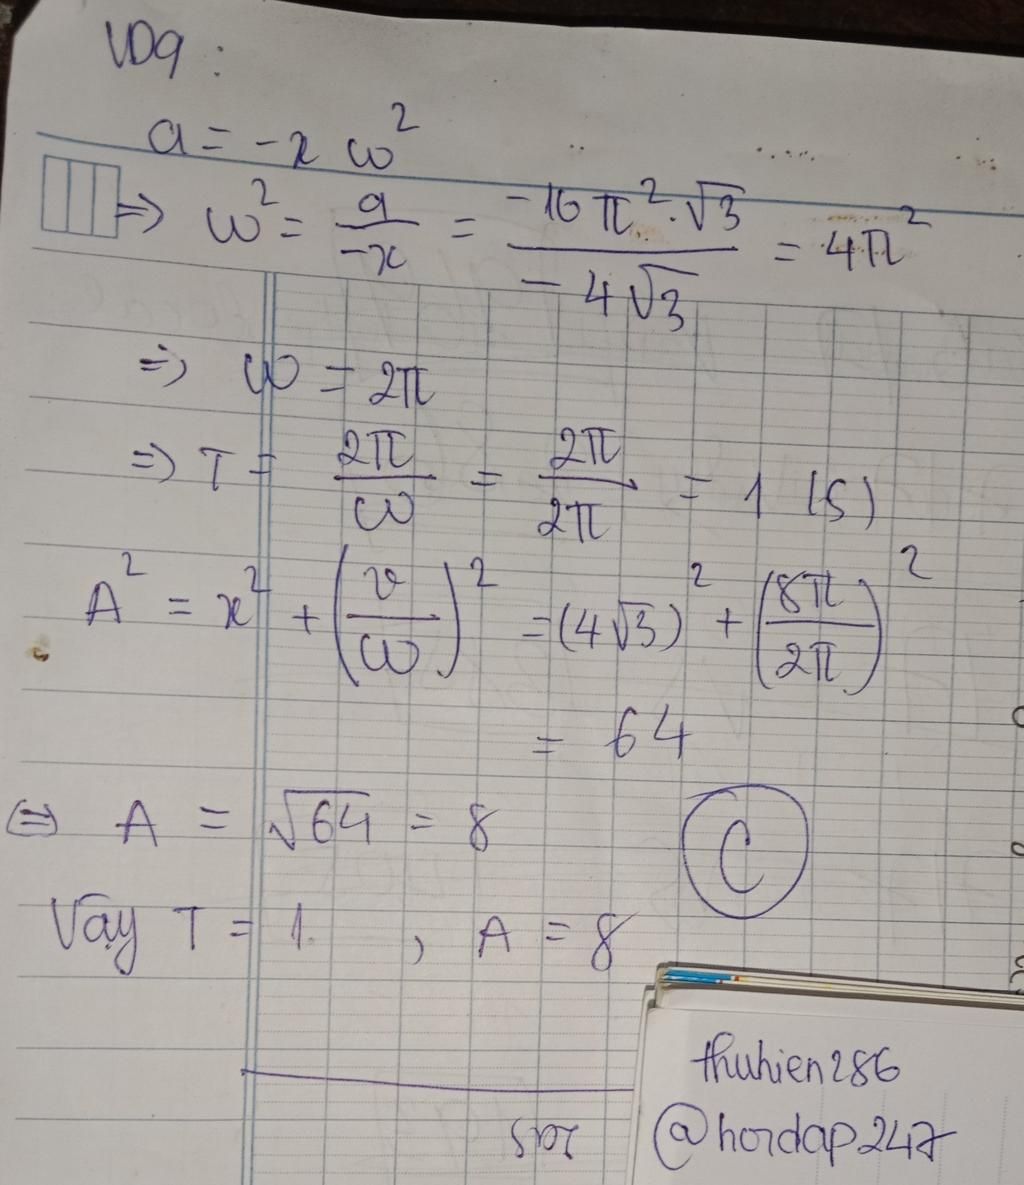 VD9 :
a = -x ω²
⇒ ω² = a/-x = -16π².√3/-4√3 = 4π²
⇒ ω = 2π
⇒ T = 2π/ω = 2π/2π = 1 (s)
A² = x² + (v/ω)² = (4√3)² + (8π/2π)²
= 64
⇔ A = √64 = 8
C
Vậy T = 1. , A = 8
thuhien286
@hoidap247